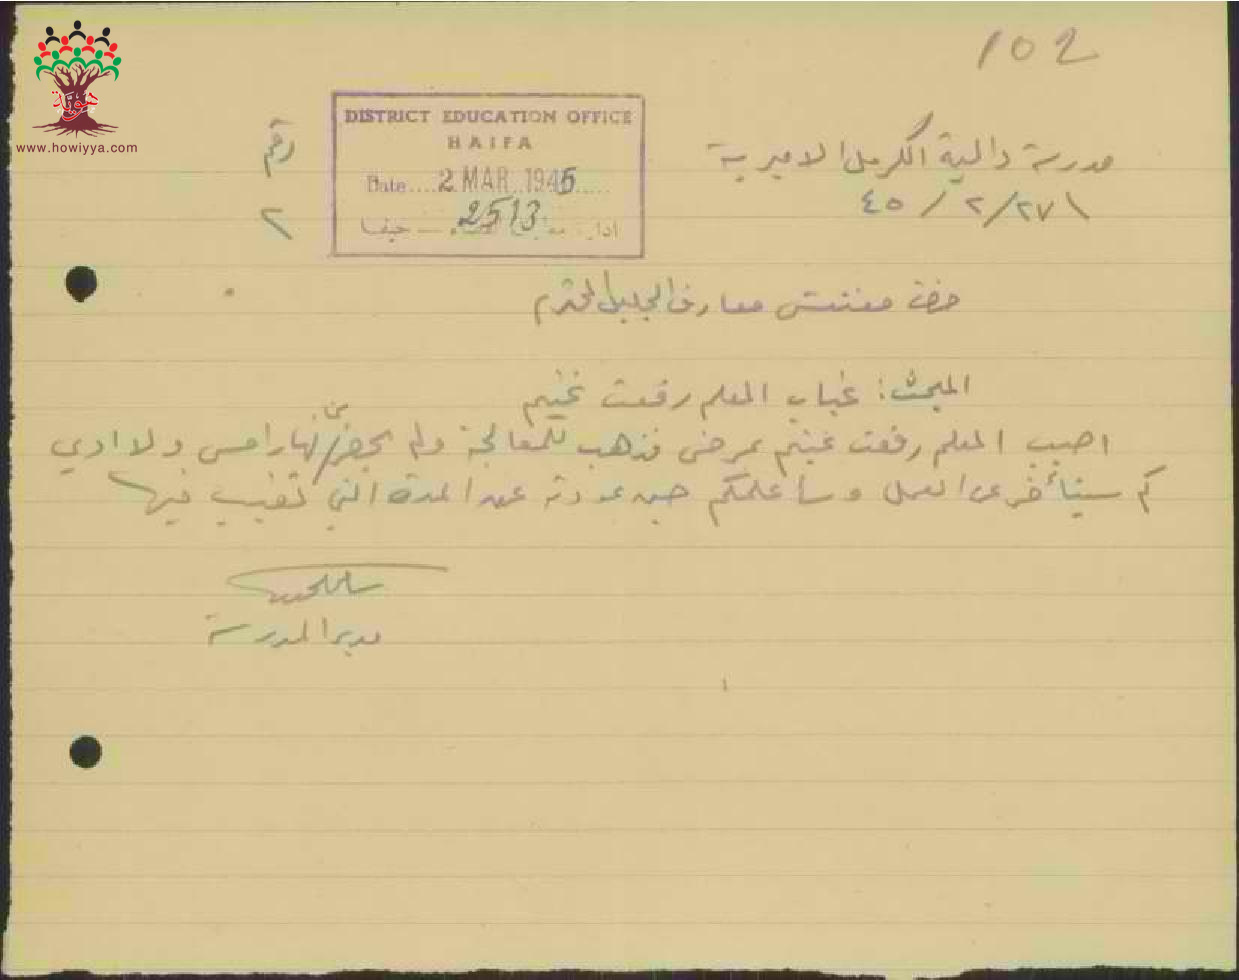 102
هوية
www.howiyya.com
DISTRICT EDUCATION OFFICE
HAIFA
Date....2 MAR 1945.....
2513
ادارة معارف لواء — حيفا
رقم
٢
مدرسة دالية الكرمل الاميرية
٤٥/٢/٢٧
حضرة مفتش معارف الجليل المحترم
المبحث: غياب المعلم رفعت غنيم
اصيب المعلم رفعت غنيم بمرض فذهب للمعالجة ولم يحضر من نهار امس ولا ادري
كم سيتأخر عن العمل وسأعلمكم حين عودته عن المدة التي تغيب فيها
مدير المدرسة